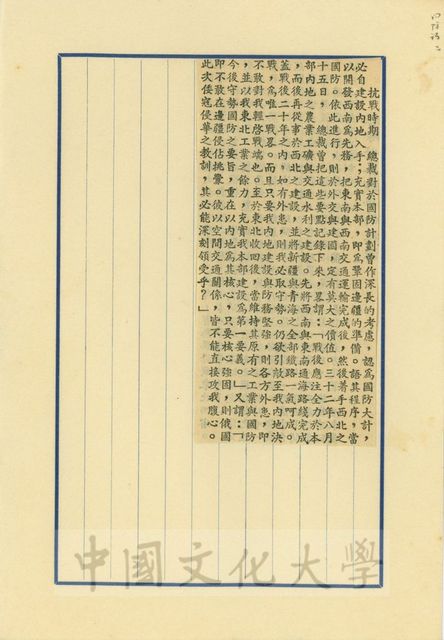 抗戰時期　總裁對於國防計劃曾作深長的考慮，認爲國防大計，
必自建設內地入手；充實本部，即爲鞏固邊疆的準備。語其程序，當
以開發西南爲先務，把東南與西南交通運輸完成後，然後着手西北之
國防。依此進行，則於外交與建國，定有莫大之價值。三十二年八月
十五日，總裁曾把這些要點記錄下來，畧謂：「戰後應注全力於本
部內地之農業工礦與交通水利之建設。先將西南與東南通海路綫完成
，而後再從事於西北之建設，並將新疆與青海之全部鐵路一氣呵成。
蓋戰後二十年之內，如有外患，則我必取守勢。仍欲引敵至我內地決
戰，爲唯一戰畧。而且只要我內地建設與防務堅強，則各方外患，即
不敢對我輕啓戰端也。至於東北收回後，當維持其原有之工業與國防
，並以我東北工業之餘力，充實我本部建設爲第一要義。」又謂：「
今後守勢國防之要旨，重在以內地爲其核心，只要核心強固，則俄國
即不敢在邊疆侵佔挑釁。彼以空間交通關係，皆不能直接攻我腹心。
此次倭寇侵華之教訓，其必能深刻領受乎？」
中國文化大學